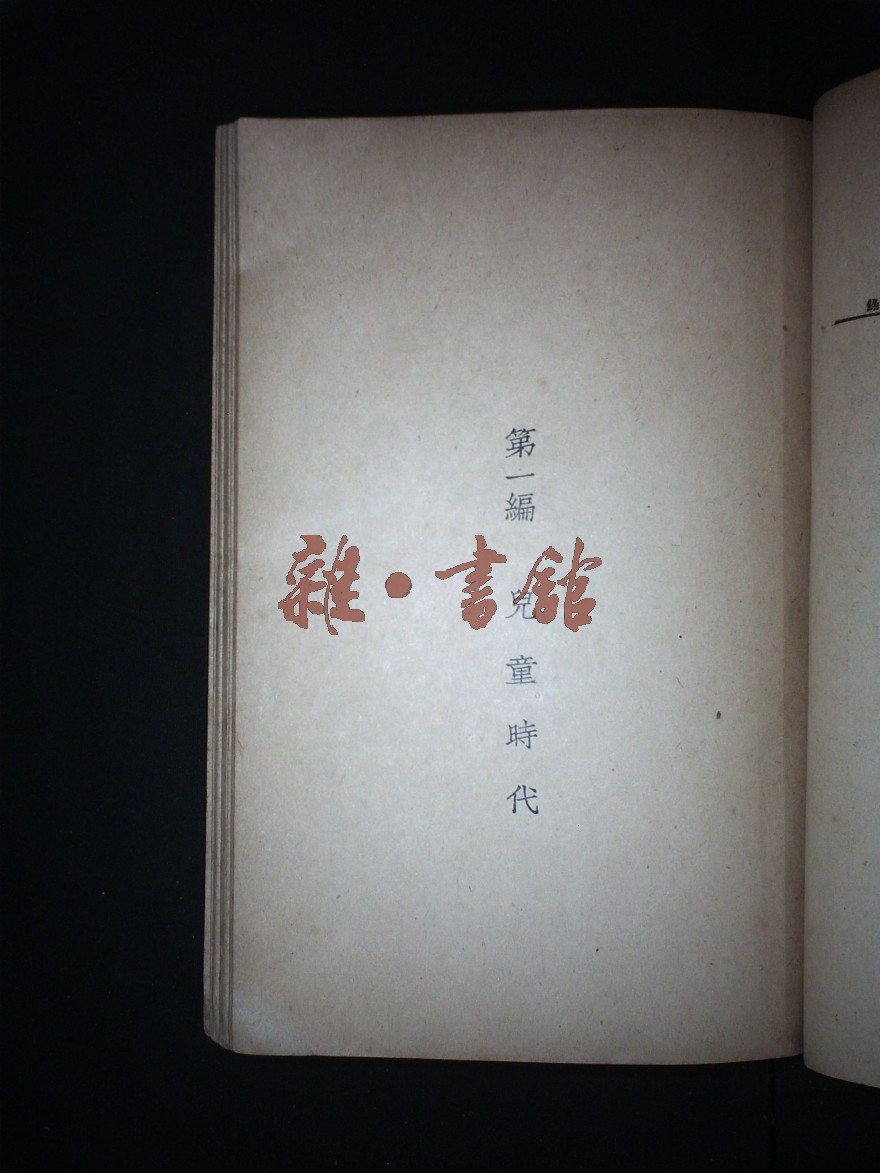 緒
第一編 兒童時代
雜·書館